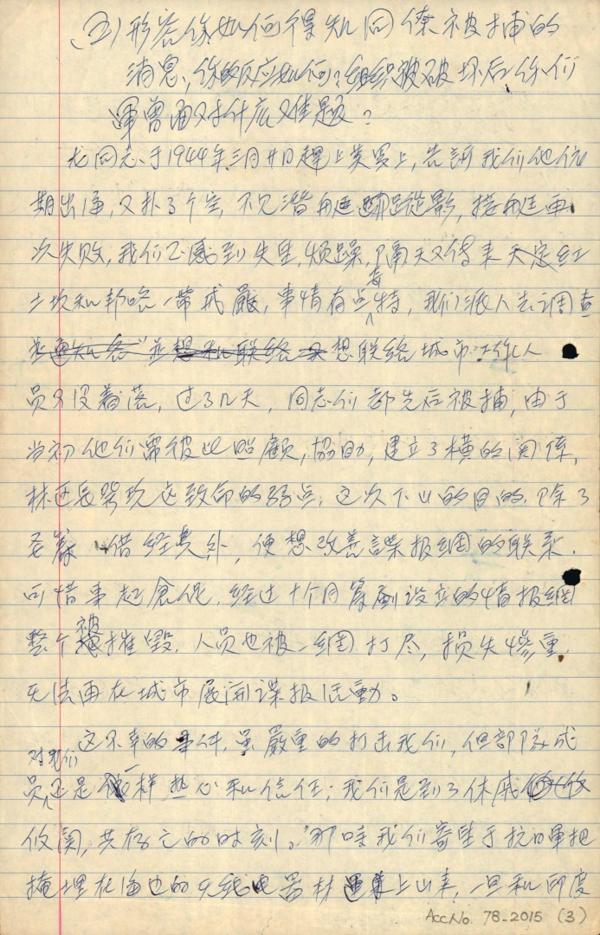 (五)形容你如何得知同僚被捕的
消息,你的反应如何?组织被破坏后你们
军曾面对什么难题?
龙同志于1944年三月廿日赶上美罗上,告诉我们他依
期出海,又扑了个空,不见潜艇踪影,接艇再
次失败,我们正感到失望,烦躁,隔天又传来天定红
土坎和邦咯一带戒严,事情有点奇特,我们派人去调查
并想联络城市工作人
员又没着落,过了几天,同志们都先后被捕,由于
当初他们需彼此照顾,协助,建立了横的关系,
林区长发现这致命的弱点,这次下山的目的,除了
筹借经费外,便想改善谍报網的联系.
可惜事起倉促,经过十个月筹劃设立的情报網
整个被摧毁,人员也被一網打尽,损失惨重,
无法再在城市展開谍报活動。
这不幸的事件,虽嚴重的打击我们,但部队成
员对我们还是一样热心和信任;我们是到了休戚
攸関,共存亡的时刻。那時我们寄望于抗日軍把
掩埋在海边的无线电器材運上山来,一旦和印度
AccNo. 78-2015 (3)